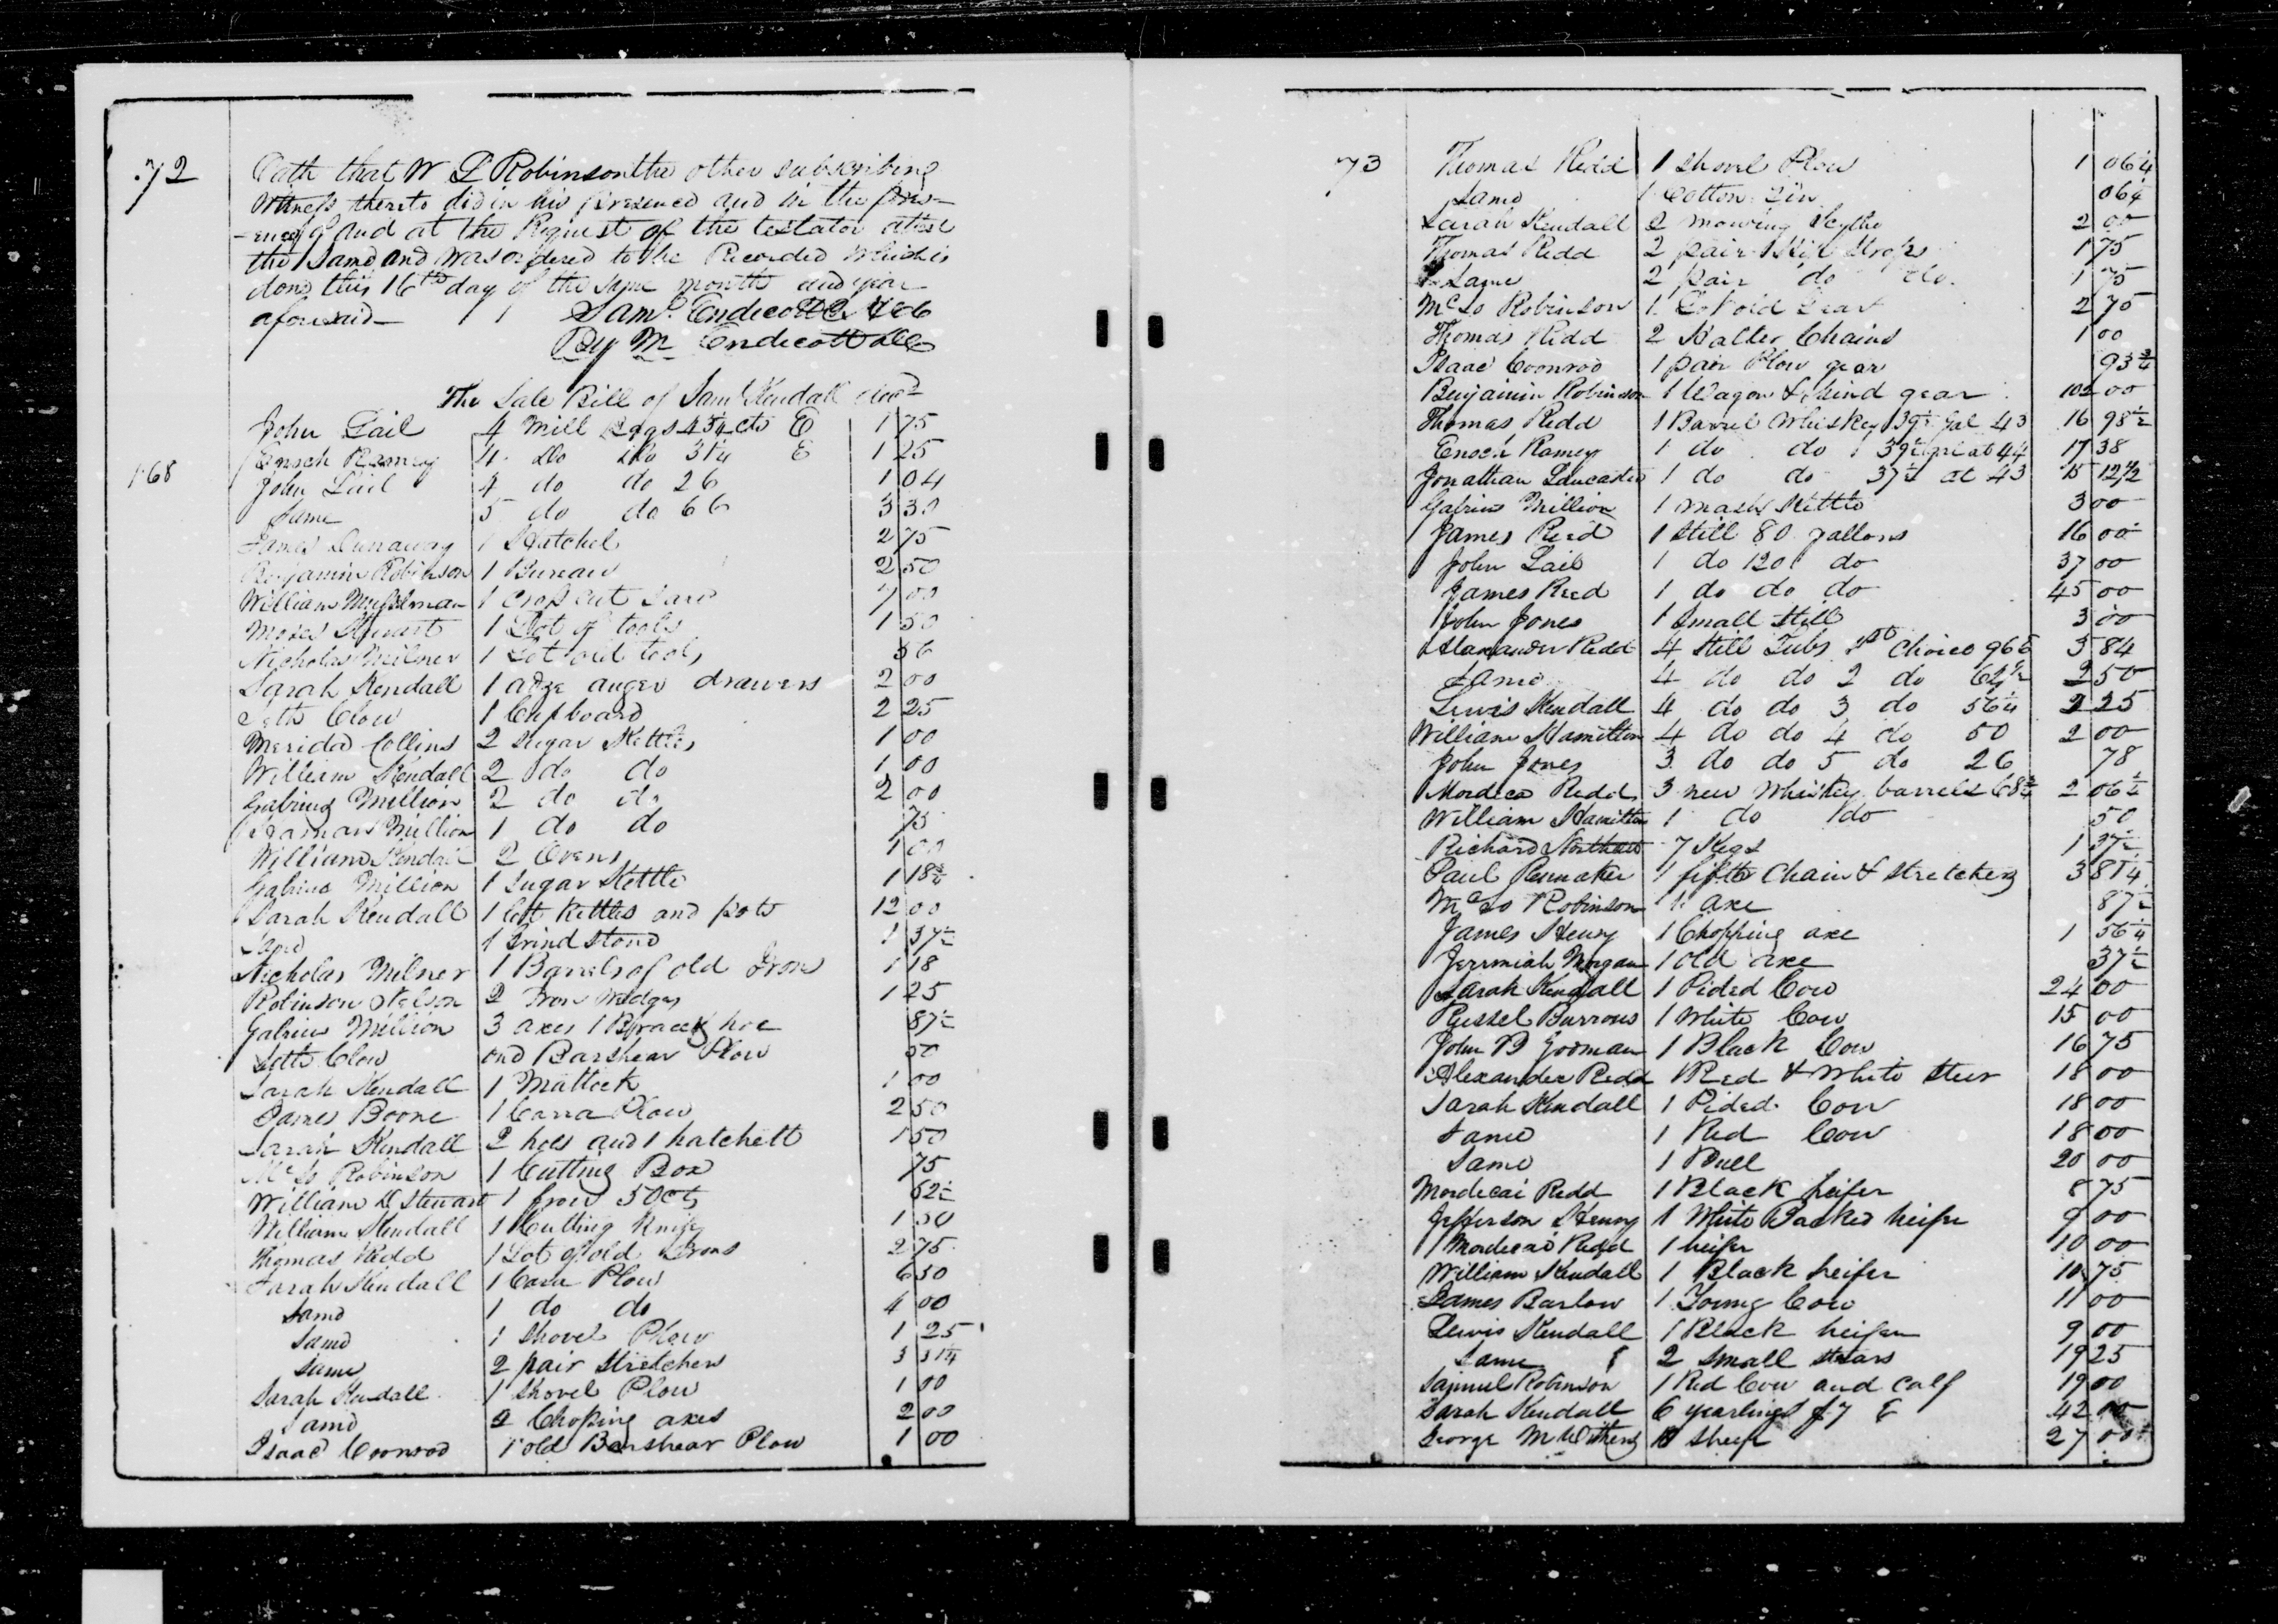 72
Oath that W L Robinson the other subscribing
Witness thereto did in his presence and in the pres-
-ence of and at the Request of the testator attest
the same and was ordered to be Recorded which is
done this 16th day of the same month and year
aforesaid Saml Endicott
By M Endicott
The Sale Bill of Saml Kendall decd
John Lail 4 Mill Bags 43¾ cts E 1 75
Enoch Ramey 4 Do Do 31¼ E 1 25
168
John Lail 4 do do 26 1 04
Same 5 do do 66 3 30
James Dunaway 1 Hatchel 2 75
Benjamin Robinson 1 Bureau 2 50
William Musselman 1 Cross cut saw 7 00
Moses Stewart 1 Lot of tools 1 50
Nicholas Milner 1 Lot old tools 56
Sarah Kendall 1 adze auger drawers 2 00
Seth Clow 1 Cupboard 2 25
Merida Collins 2 Sugar Kettles 1 00
William Kendall 2 do do 1 00
Gabriel Million 2 do do 2 00
Million 1 do do 75
William Kendall 2 Ovens 1 00
Gabriel Million 1 Sugar Kettle 1 18¾
Sarah Kendall 1 lott Kettles and pots 12 00
Same 1 Grind stone 1 37½
Nicholas Milner 1 Barrels of old Iron 1 18
Robinson Nelson 2 Iron wedges 1 25
Gabriel Million 3 axes 1 hoe 87½
Seth Clow one Barshear Plow 50
Sarah Kendall 1 Mattock 1 00
James Boone 1 Plow 2 50
Sarah Kendall 2 hoes and 1 hatchett 1 50
McLo Robinson 1 Cutting Box 75
William D Stewart 1 frow 50 cts 62½
William Kendall 1 Cutting Knife 1 50
Thomas Redd 1 Lot of old Irons 2 75
Sarah Kendall 1 Plow 6 50
Same 1 do do 4 00
Same 1 Shovel Plow 1 25
Same 2 pair Stretchers 3 31¼
Sarah Kendall 1 Shovel Plow 1 00
Same 2 Choping axes 2 00
Isaac Coonrod 1 old Barshear Plow 1 00
73
Thomas Redd 1 Shovel Plow 1 06¼
Same 1 Cotton Gin 06¼
Sarah Kendall 2 mowing Scythe 2 00
Thomas Redd 2 pair 1 75
Same 2 pair do do 1 75
McLo Robinson 1 Lot old Gear 2 75
Thomas Redd 2 Halter Chains 1 00
Isaac Coonrod 1 pair Plow gear 93¾
Benjamin Robinson 1 Wagon & hind gear 102 00
Thomas Redd 1 Barrel Whiskey 39½ Gal 43 16 98½
Enoch Ramey 1 do do 39½ gal at 44 17 38
Jonathan Lancaster 1 do do 37½ at 43 15 12½
Gabriel Million 1 mash Kettle 3 00
James Reed 1 Still 80 gallons 16 00
John Lail 1 do 120 do 37 00
James Reed 1 do do do 45 00
John Jones 1 Small Still 3 00
Alexander Redd 4 Still Tubs 1st Choice 96 3 84
Same 4 do do 2 do 62½ 2 50
Lewis Kendall 4 do do 3 do 56¼ 2 25
William Hamilton 4 do do 4 do 50 2 00
John Jones 3 do do 5 do 26 78
Mordeca Redd 3 new Whiskey barrels 68¾ 2 06¼
William Hamilton 1 do do 50
Richard 7 Kegs 1 37½
Paul 1 fifth Chain & Stretchers 3 81¼
McLo Robinson 1 axe 87½
James Henry 1 Chopping axe 1 56¼
Jerrmiah Morgan 1 old axe 37½
Sarah Kendall 1 Pided Cow 24 00
Russel Burrows 1 White Cow 15 00
John B 1 Black Cow 16 75
Alexander Redd 1 Red & White Steer 18 00
Sarah Kendall 1 Pided Cow 18 00
Same 1 Red Cow 18 00
Same 1 Bull 20 00
Mordecai Redd 1 Black heifer 8 75
Jefferson Henry 1 White Backed heifer 9 00
Mordecai Redd 1 heifer 10 00
William Kendall 1 Black heifer 10 75
James Barlow 1 Young Cow 11 00
Lewis Kendall 1 Black heifer 9 00
Same 2 small stears 19 25
Samuel Robinson 1 Red Cow and Calf 19 00
Sarah Kendall 6 yearlings $7 E 42 00
George M Withers 18 Sheep 27 00